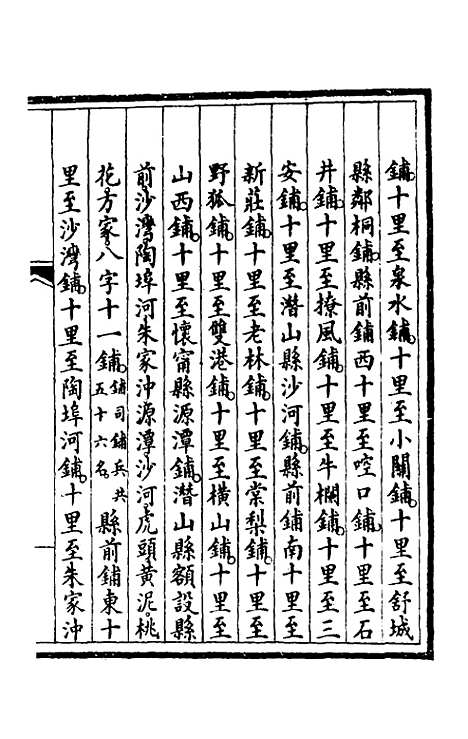 鋪。十里至泉水鋪。十里至小關鋪。十里至舒城
縣鄰桐鋪。縣前鋪西十里至啌口鋪。十里至石
井鋪。十里至撩風鋪。十里至牛欄鋪。十里至三
安鋪。十里至潛山縣沙河鋪。縣前鋪南十里至
新莊鋪。十里至老林鋪。十里至棠梨鋪。十里至
野狐鋪。十里至雙港鋪。十里至橫山鋪。十里至
山西鋪。十里至懷甯縣源潭鋪。潛山縣額設縣
前沙灣陶埠河朱家沖源潭沙河虎頭黃泥。桃
花。方家。八字十一鋪。鋪司鋪兵共五十六名。縣前鋪東十
里至沙灣鋪。十里至陶埠河鋪。十里至朱家沖